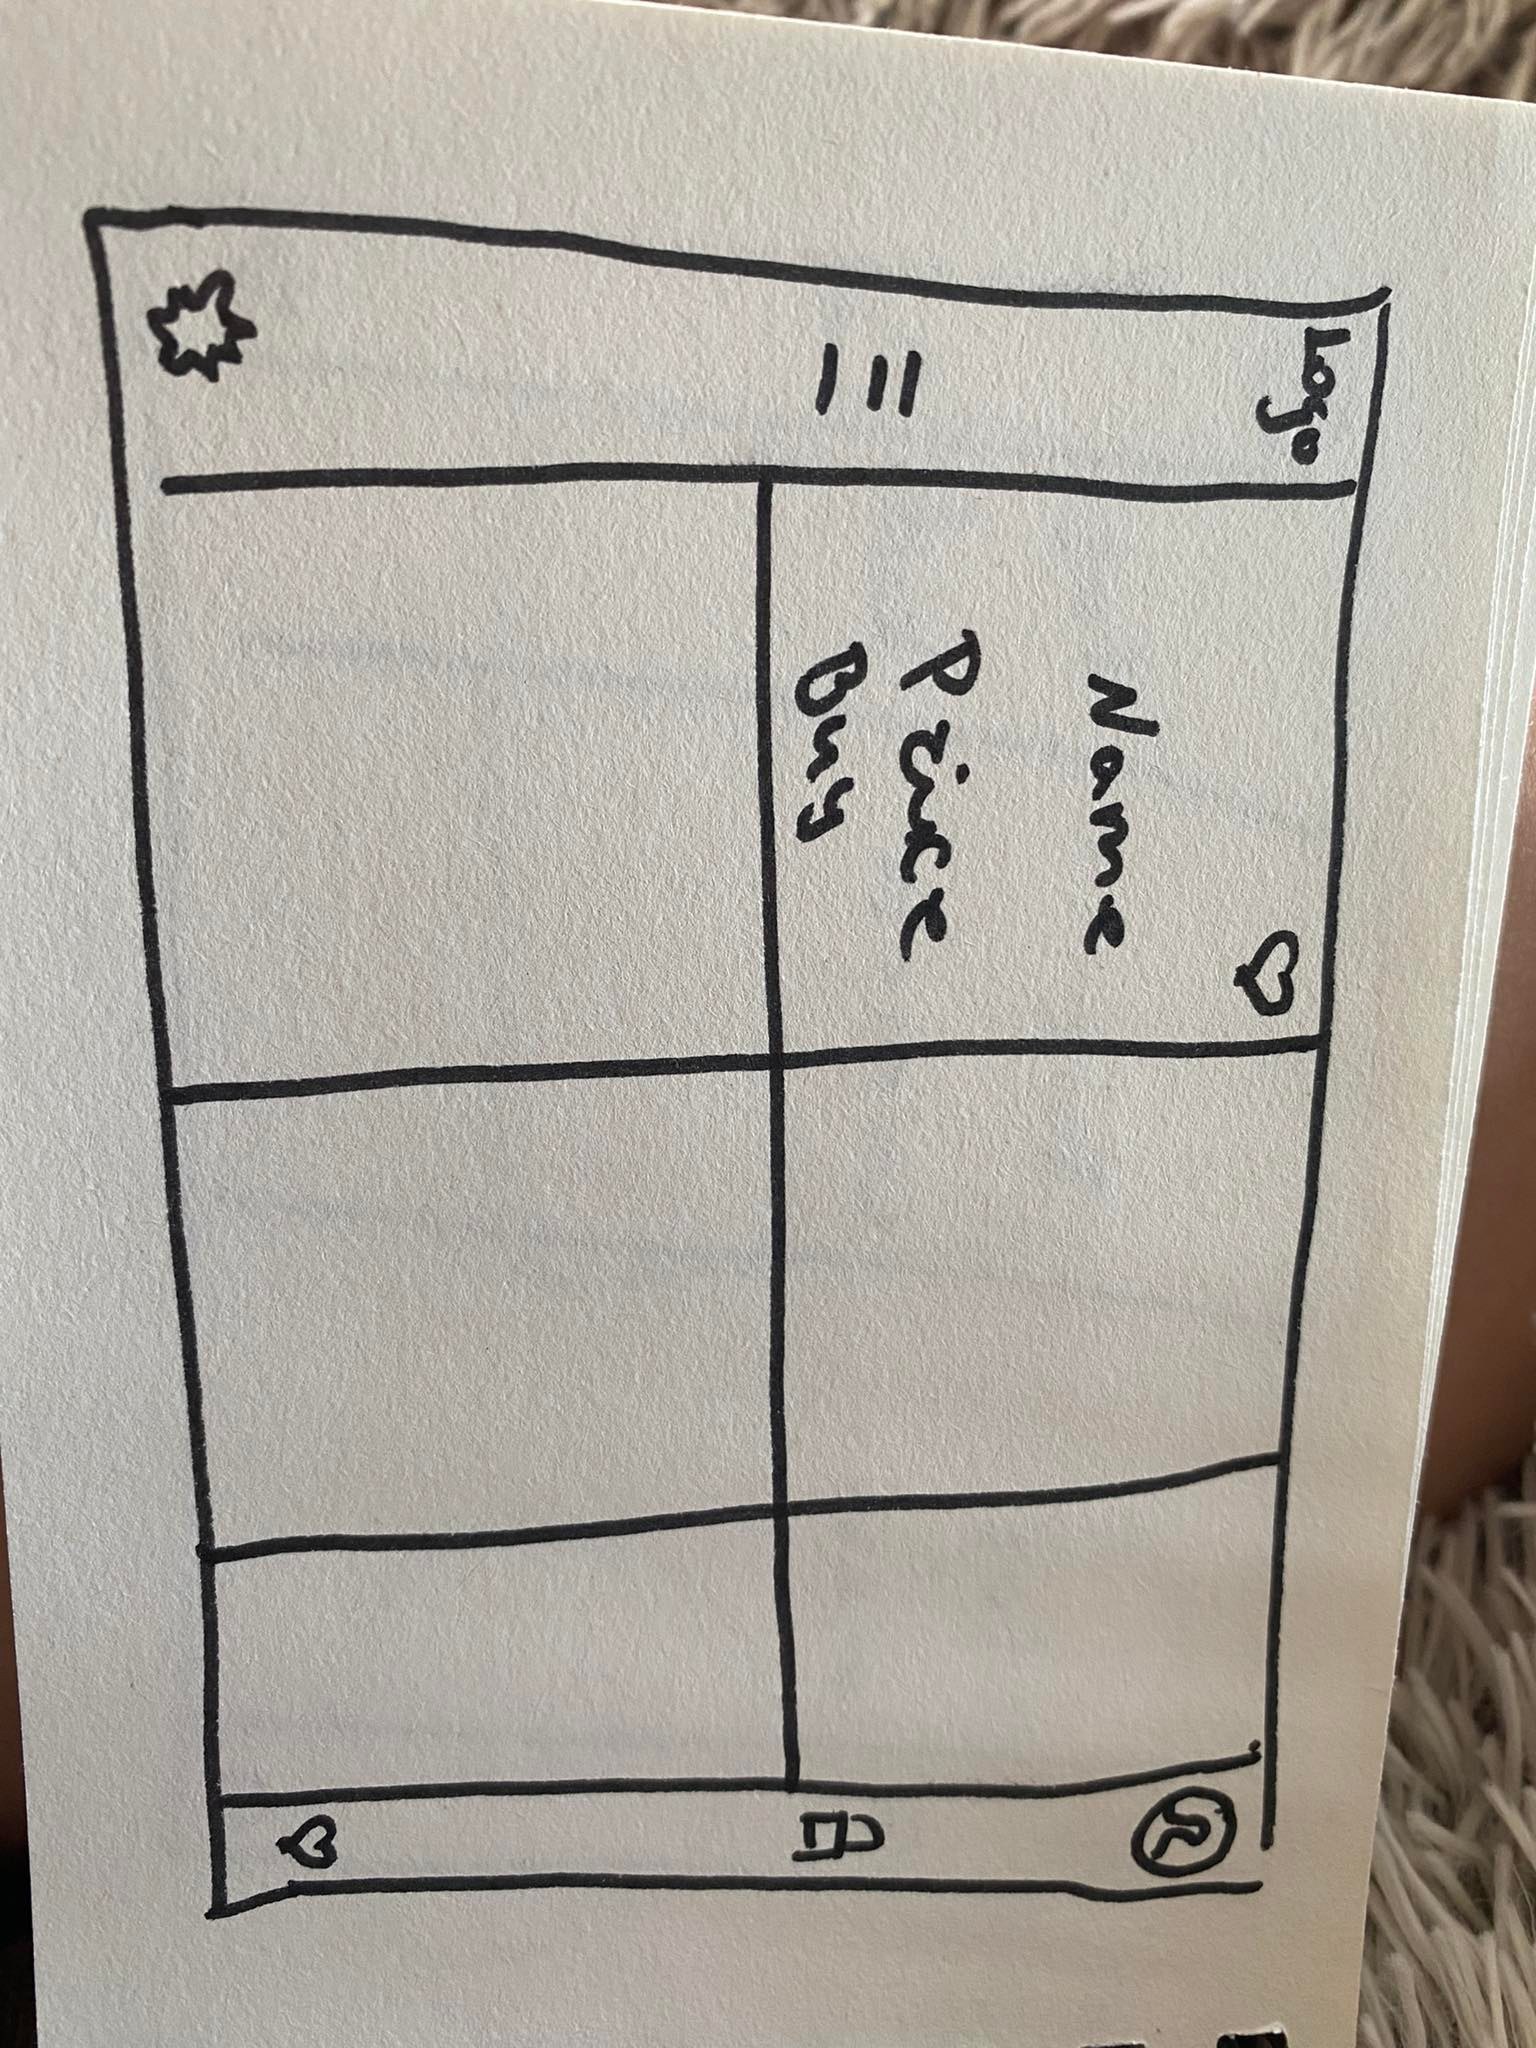 Logo
Name
Price
Buy